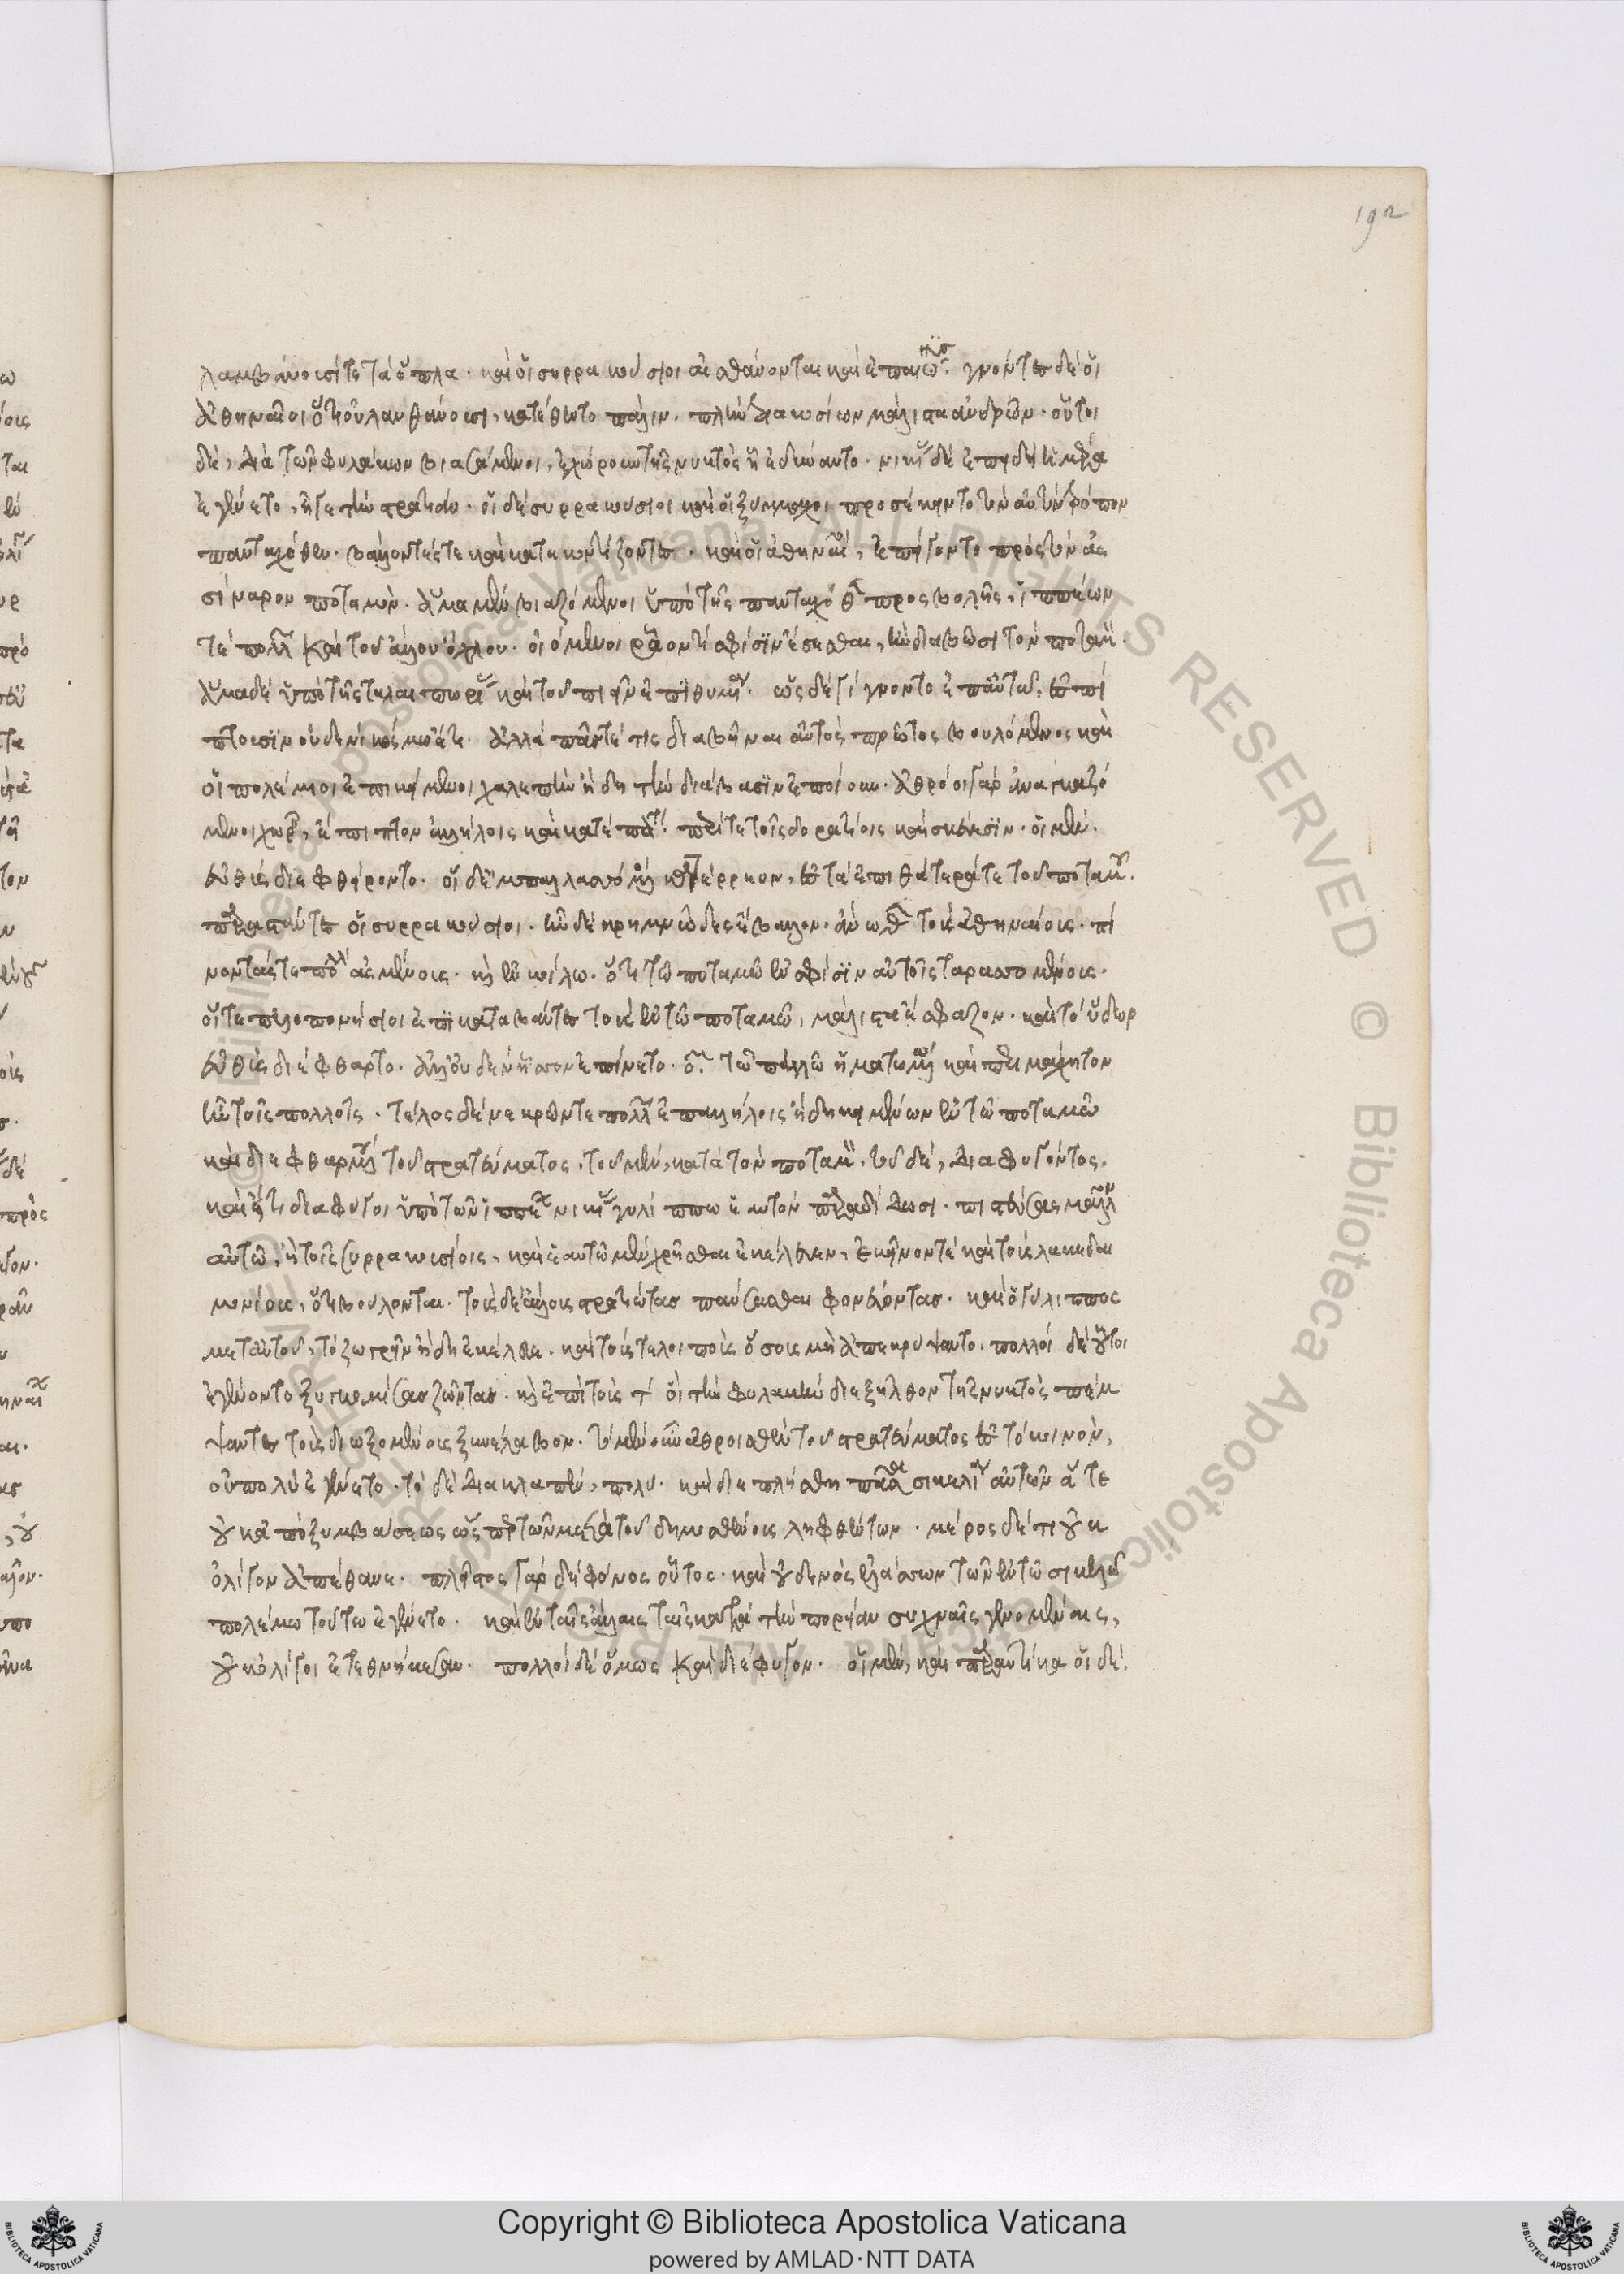 192
λαμβάνουσί τε τὰ ὅπλα· καὶ οἱ συρρακούσιοι αἰσθάνονται καὶ ἐπαιώνισ. γνόντες δὲ οἱ
ἀθηναῖοι ὅτι οὐ λανθάνουσι, κατέθεντο πάλιν. πλὴν τριακοσίων μάλιστα ἀνδρῶν. οὗτοι
δὲ, διὰ τῶν φυλάκων βιασάμενοι, ἐχώρουν τῆς νυκτὸς ᾗ ἐδύναντο. νικίας δὲ ἐπειδὴ ἡμέρα
ἐγένετο, ἦγε τὴν στρατιάν. οἱ δὲ συρρακούσιοι καὶ οἱ ξύμμαχοι προσέκειντο τὸν αὐτὸν τρόπον
πανταχόθεν. βάλλοντές τε καὶ κατακοντίζοντες. καὶ οἱ ἀθηναῖοι, ἠπείγοντο πρὸς τὸν ἀσ
σίναρον ποταμὸν. ἅμα μὲν βιαζόμενοι ὑπὸ τῆς πανταχόθεν προσβολῆς, ἱππέων
τε πολλῶν καὶ τοῦ ἄλλου ὄχλου. οἰόμενοι ῥᾷόν τι σφίσιν ἔσεσθαι, ἢν διαβῶσι τὸν ποταμὸν.
ἅμα δὲ ὑπὸ τῆς ταλαιπωρίας καὶ τοῦ πιεῖν ἐπιθυμίᾳ. ὡς δὲ γίγνονται ἐπ' αὐτῷ, ἐσπί
πτουσιν οὐδενὶ κόσμῳ ἔτι. ἀλλὰ πᾶς τέ τις διαβῆναι αὐτὸς πρῶτος βουλόμενος καὶ
οἱ πολέμιοι ἐπικείμενοι χαλεπὴν ἤδη τὴν διάβασιν ἐποίουν. ἀθρόοι γὰρ ἀναγκαζό
μενοι χωρεῖν, ἐπέπιπτον ἀλλήλοις καὶ κατεπάτουν. περί τε τοῖς δορατίοις καὶ σκεύεσιν. οἱ μὲν.
εὐθὺς διεφθείροντο. οἱ δὲ ἐμπαλασσόμενοι κατέρρεον. ἐς τὰ ἐπὶ θάτερά τε τοῦ ποταμοῦ.
παραστάντες οἱ συρρακούσιοι. ἦν δὲ κρημνῶδες ἔβαλλον. ἄνωθεν τοὺς ἀθηναίους. πί
νοντάς τε πολλοὺς ἀσμένους. καὶ ἐν κοίλῳ. ὄντι τῷ ποταμῷ ἐν σφίσιν αὐτοῖς ταρασσομένους.
οἵ τε πελοποννήσιοι ἐπικαταβάντες τοὺς ἐν τῷ ποταμῷ, μάλιστα ἔσφαζον. καὶ τὸ ὕδωρ
εὐθὺς διέφθαρτο. ἀλλ' οὐδὲν ἧσσον ἐπίνετο. ὁμοῦ τῷ πηλῷ ᾑματωμένον καὶ περιμάχητον
ἦν τοῖς πολλοῖς. τέλος δὲ νεκρῶν τε πολλῶν ἐπ' ἀλλήλοις ἤδη κειμένων ἐν τῷ ποταμῷ
καὶ διεφθαρμένου τοῦ στρατεύματος, τοῦ μὲν, κατὰ τὸν ποταμὸν. τοῦ δὲ, διαφυγόντος.
καὶ εἴ τι διαφύγοι ὑπὸ τῶν ἱππέων νικίας γυλίππῳ ἑαυτὸν παραδίδωσι. πιστεύσας μᾶλλον
αὐτῷ, ἢ τοῖς συρρακουσίοις. καὶ ἑαυτῷ μὲν χρῆσθαι ἐκέλευεν, ἐκεῖνόν τε καὶ τοὺς λακεδαι
μονίους, ὅτι βούλονται. τοὺς δὲ ἄλλους στρατιώτας παύσασθαι φονεύοντας. καὶ ὁ γύλιππος
μετὰ τοῦτο, ζωγρεῖν ἤδη ἐκέλευε. καὶ τούς τε λοιποὺς ὅσους μὴ ἀπεκρύψαντο. πολλοὶ δὲ οὗτοι
ἐγένοντο ξυνεκόμισαν ζῶντας. καὶ ἐπὶ τοὺς τ οἳ τὴν φυλακὴν διεξῆλθον τῆς νυκτὸς πέμ
ψαντες τοὺς διωξομένους ξυνέλαβον. τὸ μὲν οὖν ἀθροισθὲν τοῦ στρατεύματος ἐς τὸ κοινὸν,
οὐ πολὺ ἐγένετο. τὸ δὲ διακλαπὲν, πολὺ. καὶ διεπλήσθη πᾶσα σικελία αὐτῶν ἅτε
οὐκ ἀπὸ ξυμβάσεως ὥσπερ τῶν μετὰ τοῦ δημοσθένους ληφθέντων. μέρος δέ τι οὐκ
ὀλίγον ἀπέθανε. πλεῖστος γὰρ δὴ φόνος οὗτος. καὶ οὐδενὸς ἐλάσσων τῶν ἐν τῷ σικελικῷ
πολέμῳ τούτῳ ἐγένετο. καὶ ἐν ταῖς ἄλλαις ταῖς κατὰ τὴν πορείαν συχναῖς γενομέναις,
οὐκ ὀλίγοι ἐτεθνήκεσαν. πολλοὶ δὲ ὅμως καὶ διέφυγον. οἱ μὲν, καὶ παραυτίκα οἱ δὲ.
Copyright © Biblioteca Apostolica Vaticana
powered by AMLAD·NTT DATA